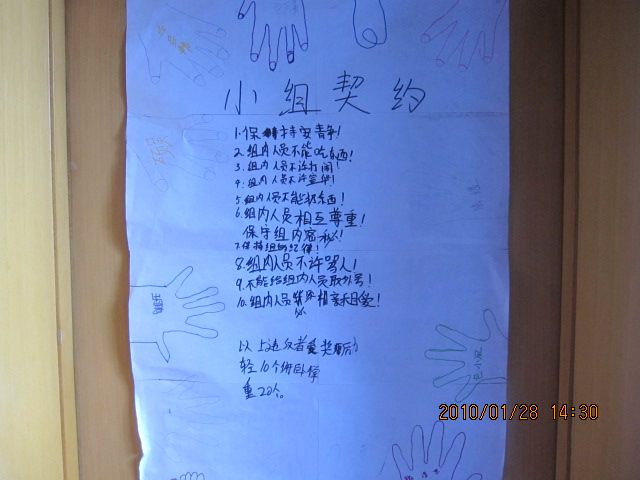 小组契约
1.保持安静!
2.组内人员不能吃东西!
3.组内人员不许打闹!
4.组内人员不许
5.组内人员不能扔东西!
6.组内人员相互尊重!
保守组内密秘!
7.保持组的纪律!
8.组内人员不许骂人!
9.不能给组内人员取外号!
10.组内人员 相亲相爱!
以上违反者
轻10个俯卧撑
重20个。
2010/01/28 14:30